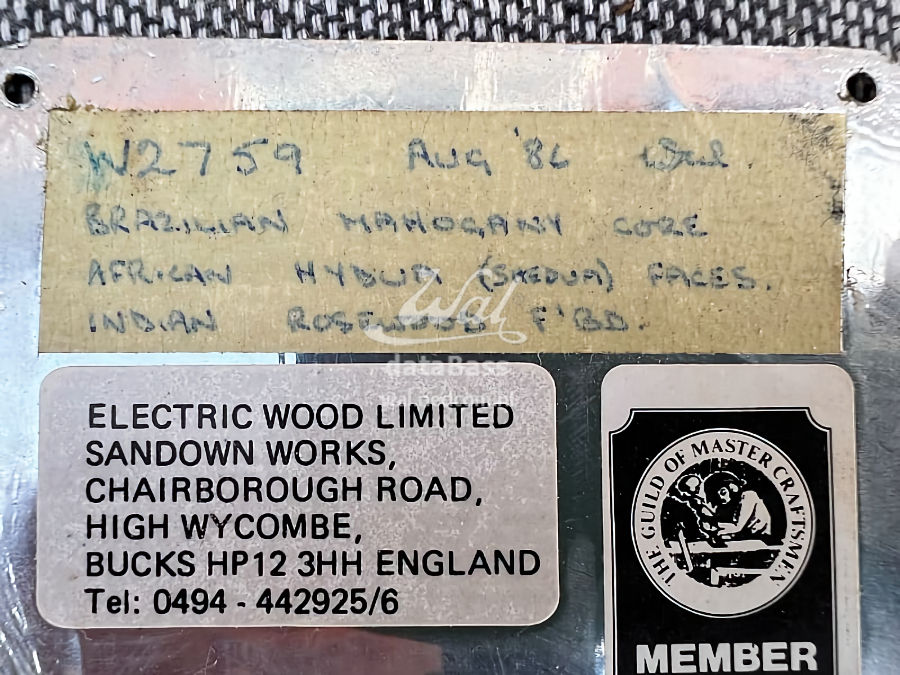 W2759 Aug '86 Wal
BRAZILIAN MAHOGANY CORE
AFRICAN HYDUA (SHEDUA) FACES.
INDIAN ROSEWOOD F'BD.
Wal
dataBass
ELECTRIC WOOD LIMITED
SANDOWN WORKS,
CHAIRBOROUGH ROAD,
HIGH WYCOMBE,
BUCKS HP12 3HH ENGLAND
Tel: 0494 - 442925/6
THE GUILD OF MASTER CRAFTSMEN
MEMBER